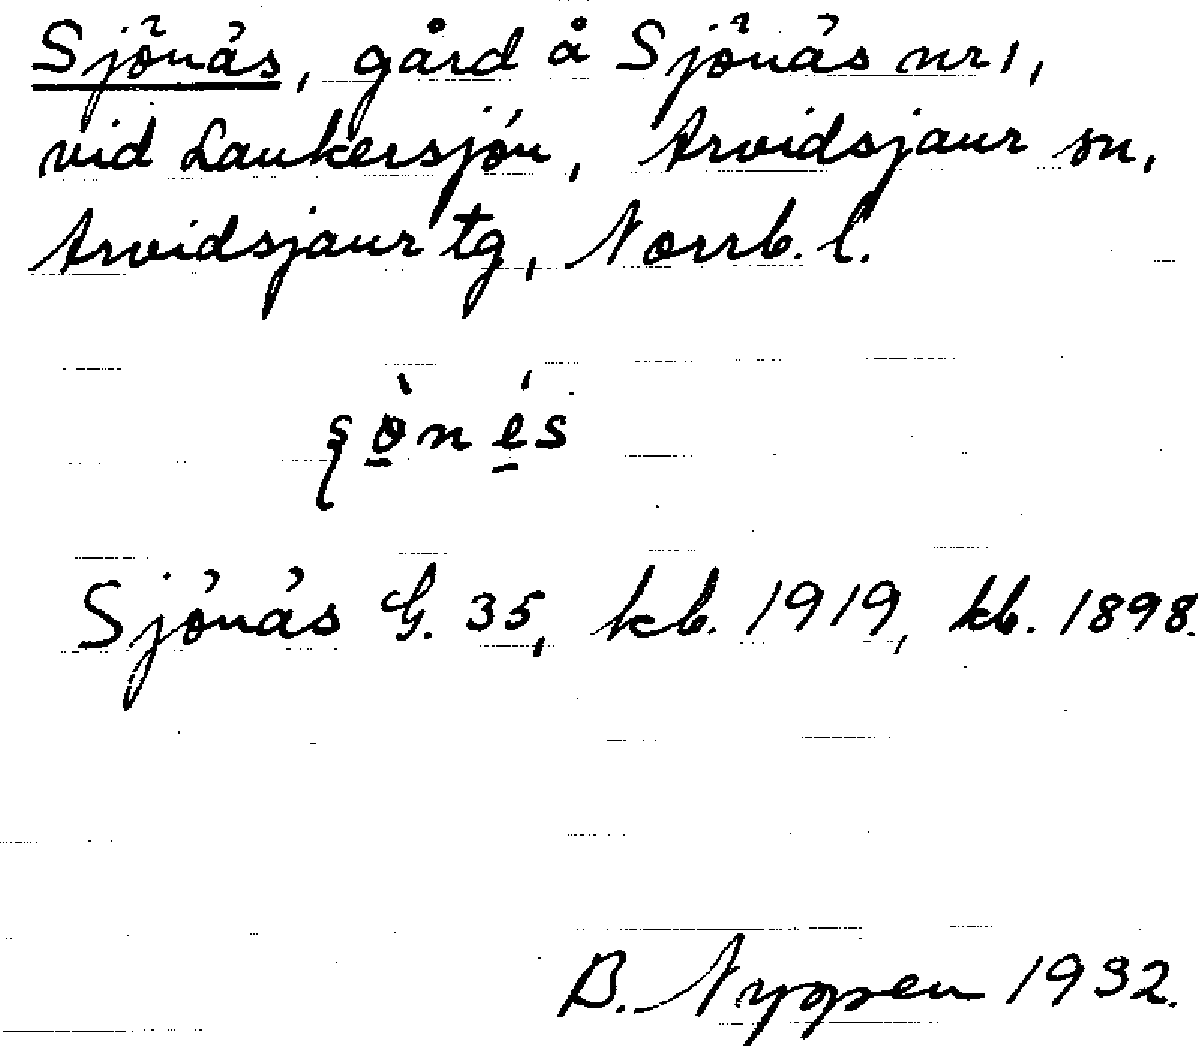 Sjönäs, gård å Sjönäs nr 1,
vid Laukersjön, Arvidsjaur sn,
Arvidsjaur tg, Norrb. l.
Sjönäs G. 35, kb. 1919, kb. 1898.
B. Nyppen 1932.